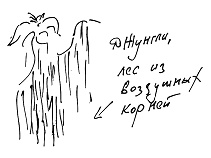 джунгли,
лес из
воздушных
корней